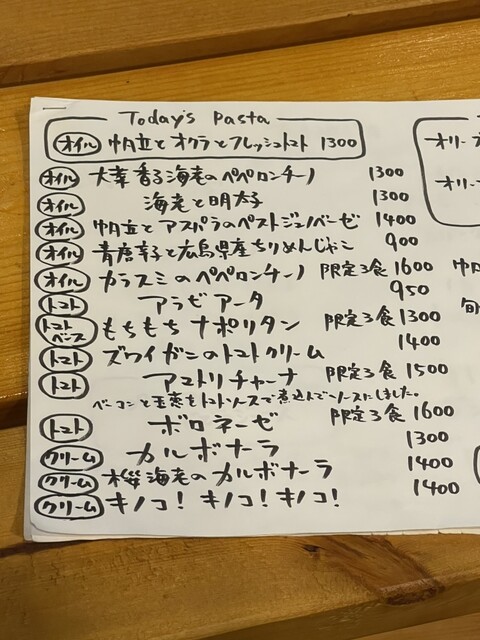 Today's Pasta
オイル 帆立とオクラとフレッシュトマト 1300
オイル 大葉香る海老のペペロンチーノ 1300
オイル 海老と明太子 1300
オイル 帆立とアスパラのペストジェノベーゼ 1400
オイル 青唐辛子と広島県産ちりめんじゃこ 900
オイル カラスミのペペロンチーノ 限定3食 1600
トマト アラビアータ 950
トマトベース もちもちナポリタン 限定3食 1300
トマト ズワイガニのトマトクリーム 1400
トマト アマトリチャーナ 限定3食 1500
ベーコンと玉葱をトマトソースで煮込んでソースにしました。
トマト ボロネーゼ 限定3食 1600
クリーム カルボナーラ 1300
クリーム 桜海老のカルボナーラ 1400
クリーム キノコ!キノコ!キノコ! 1400
オリーブ
オリー
帆
旬